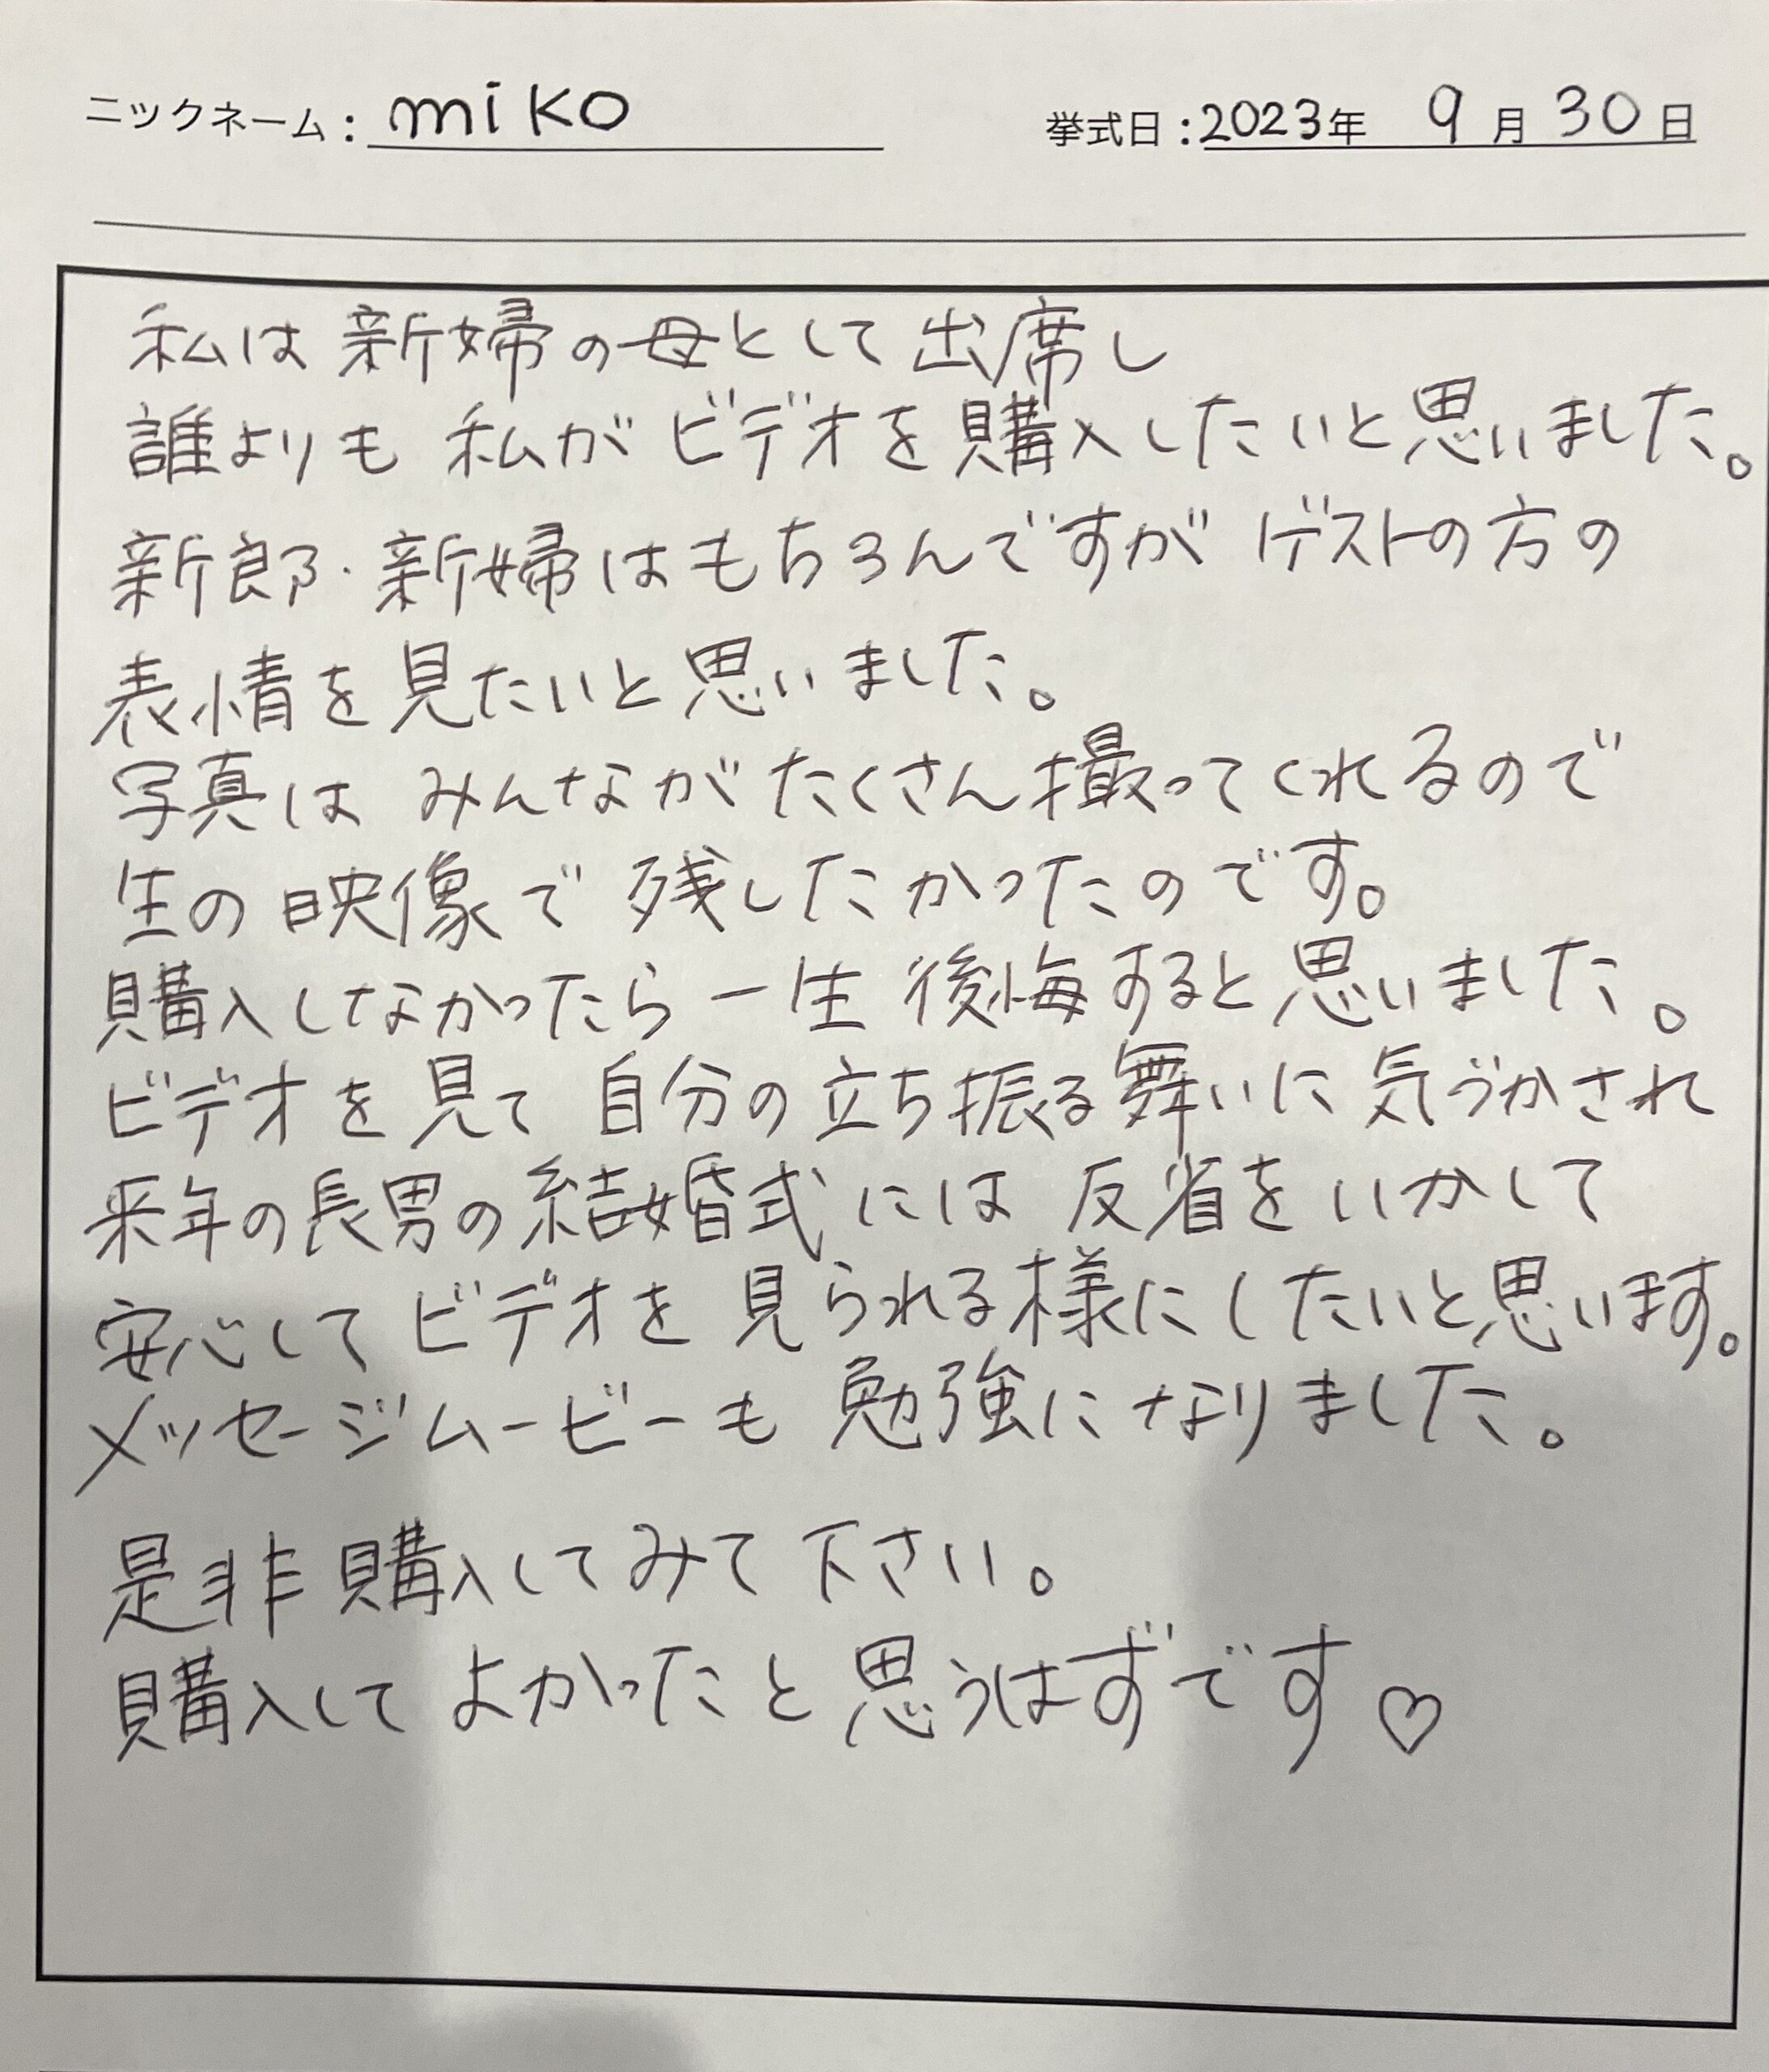 ニックネーム：miko　挙式日：2023年 9月30日
私は新婦の母として出席し
誰よりも私がビデオを購入したいと思いました。
新郎・新婦はもちろんですがゲストの方の
表情を見たいと思いました。
写真はみんながたくさん撮ってくれるので
生の映像で残したかったのです。
購入しなかったら一生後悔すると思いました。
ビデオを見て自分の立ち振る舞いに気づかされ
来年の長男の結婚式には反省をいかして
安心してビデオを見られる様にしたいと思います。
メッセージムービーも勉強になりました。
是非購入してみて下さい。
購入してよかったと思うはずです♡